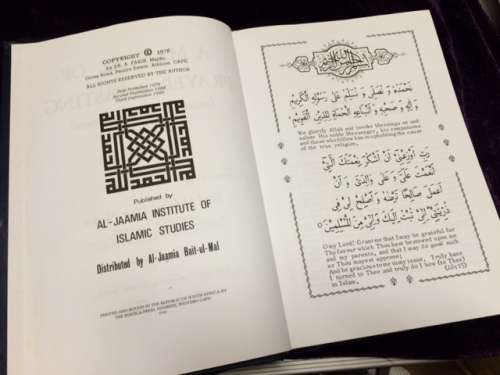 COPYRIGHT © 1978
by DR. A. FAKIR, Maqdu,
ALL RIGHTS RESERVED BY THE AUTHOR
First Published 1978
Second Impression 1988
Published by
AL-JAAMIA INSTITUTE OF
ISLAMIC STUDIES
Distributed by Al-Jaamia Bait-ul-Mal
PRINTED AND BOUND IN THE REPUBLIC OF SOUTH AFRICA BY
THE RUSTICA PRESS, NDABENI, WESTERN CAPE
نحمده و نصلي و نسلم على رسوله الكريم
و آله و صحبه و أتباعه الحملة للدين القويم
We glorify Allah and invoke blessings on and
salute His noble Messenger, his companions
and those who follow him in upholding the cause
of the true religion.
رب أوزعني أن أشكر نعمتك التي
أنعمت علي و على والدي و أن
أعمل صالحا ترضه و أصلح لي في
ذريتي إني تبت إليك و إني من المسلمين
O my Lord! Grant me that I may be grateful for
Thy favour which Thou hast bestowed upon me
and my parents, and that I may do good such
as Thou mayest approve;
And be gracious to me in my issue. Truly have
I turned to Thee and truly do I bow (to Thee)
in Islam.